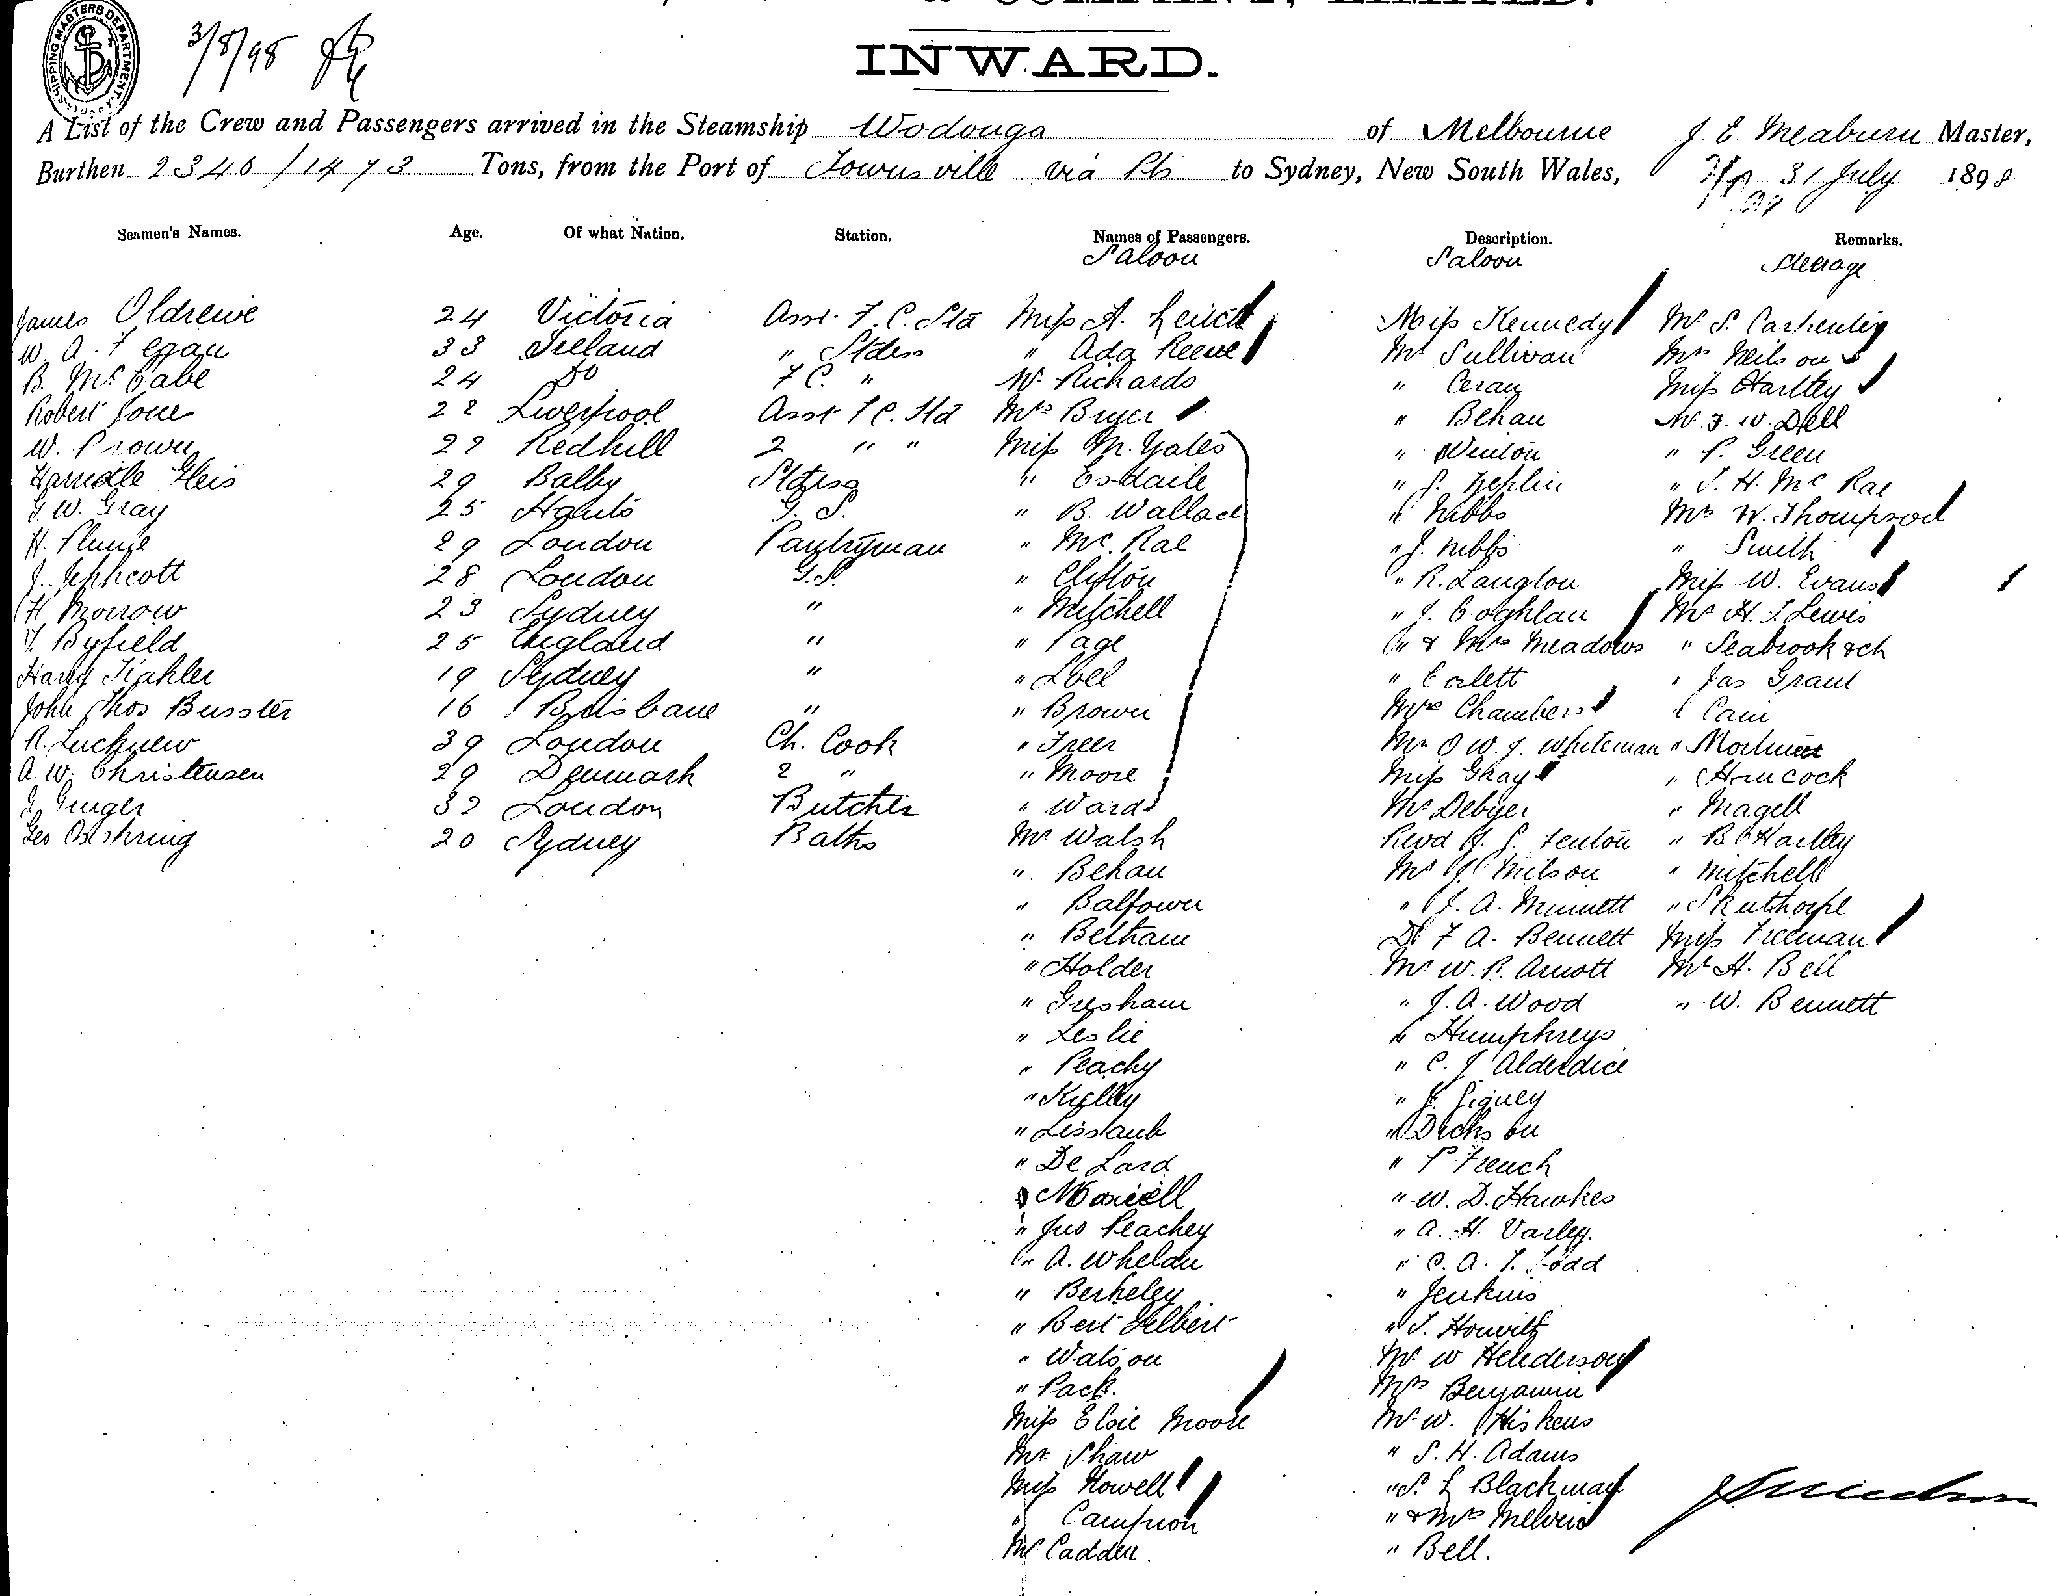 & COMPANY, LIMITED.
SHIPPING MASTERS DEPARTMENT
3/8/98
INWARD.
A List of the Crew and Passengers arrived in the Steamship Wodonga of Melbourne J E Meaburn Master,
Burthen 2340/1473 Tons, from the Port of Townsville via Pts to Sydney, New South Wales, 31 July 1898
Seamen's Names. Age. Of what Nation. Station. Names of Passengers. Description. Remarks.
Saloon Saloon Steerage
James Oldreive 24 Victoria Asst. F. C. Std Miss A. Leitch Miss Kennedy Mr S. Carpenter
W. A. Fegan 33 Ireland " Stdess " Ada Reeve Mr Sullivan Mrs Neilson
B. McCabe 24 Do F C. " Mr Richards " Ceran Miss Hartley
Robert Jone 22 Liverpool Asst F C. Std Mrs Bryer " Behan Mr F. W. Dell
W. Brown 22 Redhill 2 " " Miss M. Yates " Winton " P. Green
29 Balby Stdess " Esdaile " S. Zeplin " J. H. McRae
G. W. Gray 25 Hants G. S. " B. Wallace " Nibbs Mrs W. Thompson
H. Plume 29 London Pantryman " McRae " J. Nibbs " Smith
J. Jephcott 28 London G.S. " Clifton " R. Langton Miss W. Evans
H Morrow 23 Sydney " " Mitchell " J. Coghlan Mr H. J Lewis
T. Byfield 25 England " " Page " & Mrs Meadows " Seabrook & ch
Harry Kahler 19 Sydney " " Loel " Corlett " Jas Grant
John Thos Busster 16 Brisbane " " Brown Mrs Chambers " Cain
R. Lucknew 39 London Ch. Cook " Freer Mr O W. J. Whiteman " Mortimer
A. W. Christensen 29 Denmark 2 " " Moore Miss Ghay " Hancock
J. Ginger 32 London Butcher " Ward Mr Debyer " Magell
Geo 20 Sydney Baths Mr Walsh Revd J. S. Fenton " B. Hartley
" Behan Mr J Milson " Mitchell
" Balfower " J. A. Minnett " Skuthorpe
" Beltham Dr F A. Bennett Miss Freeman
" Holder Mr W. R. Arnott Mr H. Bell
" Gresham " J. A. Wood " W. Bennett
" Leslie " Humphreys
" Peachy " C. J Alderdice
" Kelly " J. Signey
" Lissaub " Dickson
" De Lard " P French
" Maxwell " W. D. Hawkes
" Jno Peachey " A. H. Varley.
" A. Wheldn " C. A. T. Todd
" Berkeley " Jenkins
" Bert Gilbert " J. Horwitz
" Watson Mr W Henderson
" Pack. Mrs Benjamin
Miss Elsie Moore Mr W. Hiskens
Mr Shaw " S. H. Adams
Miss Howell " S. L Blackman
" Campion " & Mrs Melvin
Mr Cadden. " Bell.